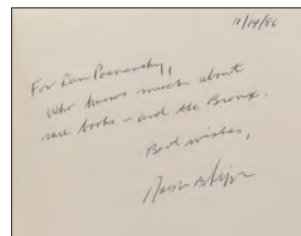 11/14/86
For Dan Posnansky,
who knows much about
rare books – and the Bronx.
Best wishes,